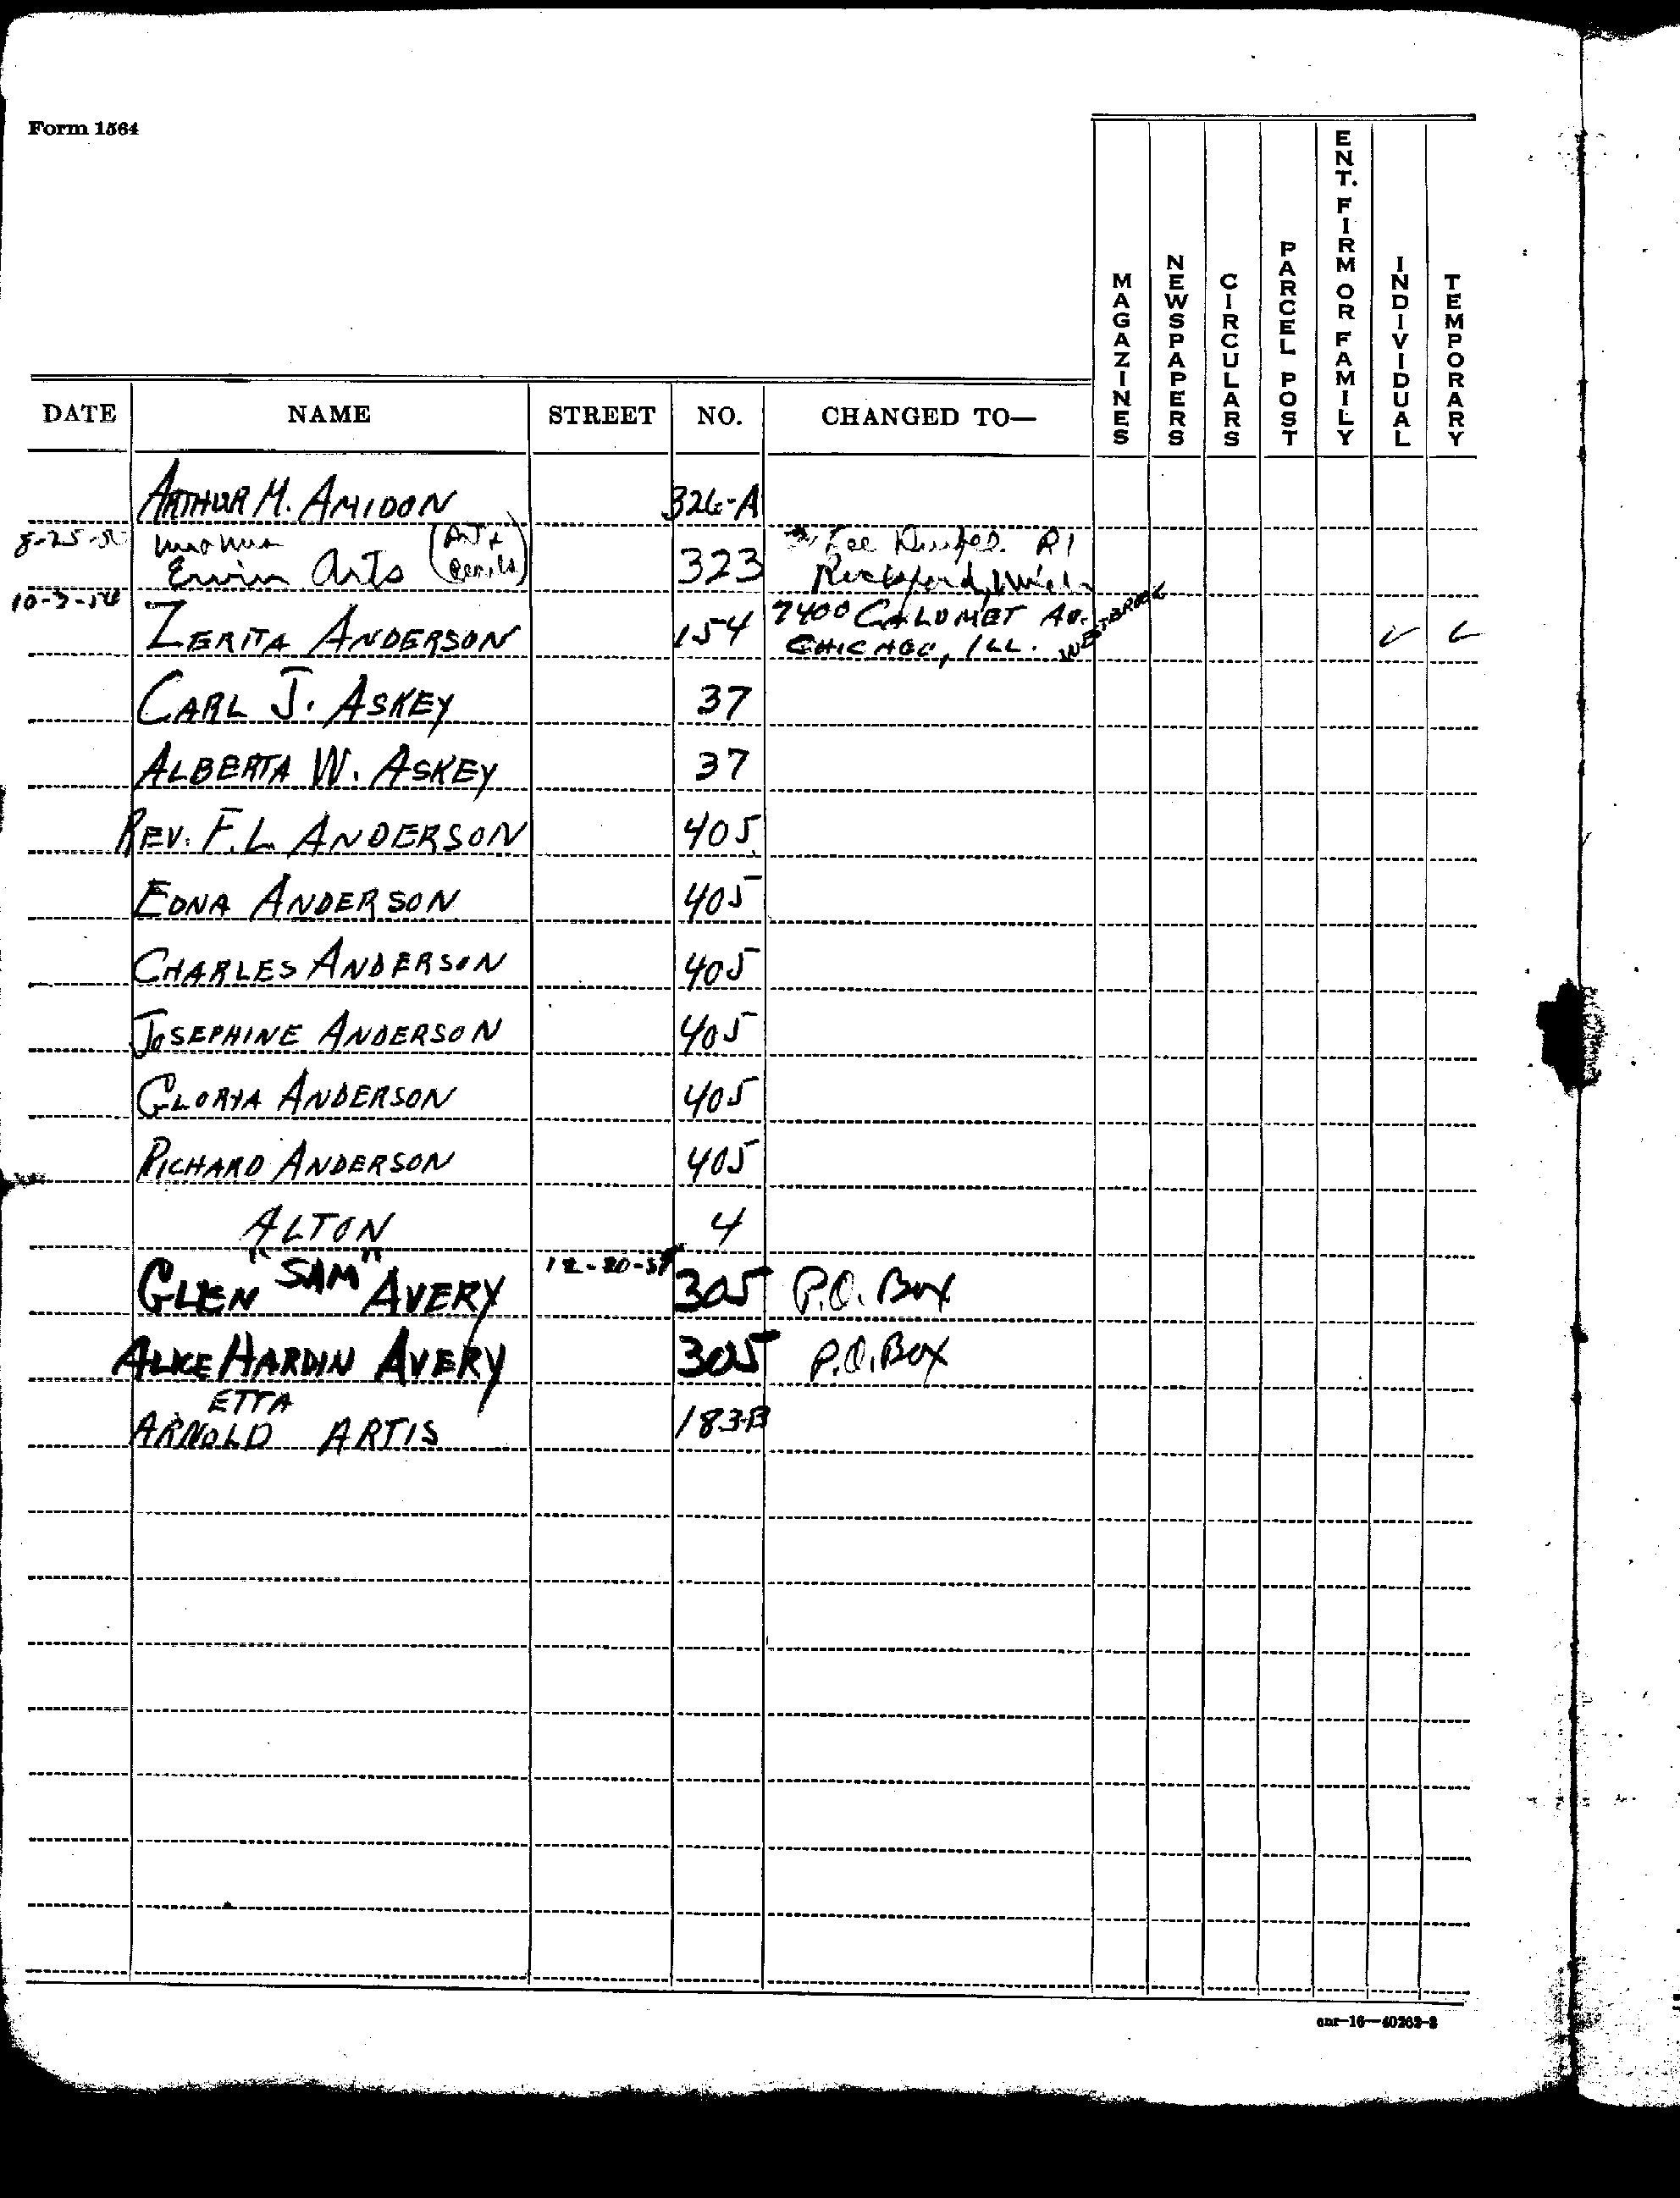 Form 1564
MAGAZINES
NEWSPAPERS
CIRCULARS
PARCEL POST
ENT. FIRM OR FAMILY
INDIVIDUAL
TEMPORARY
DATE NAME STREET NO. CHANGED TO—
ARTHUR M. AMIDON 326-A
8-25-
Erwin Arts 323 R1
Rockford, Mich
10-3-54 ZERITA ANDERSON 154 7400 CALUMET AV.
CHICAGO, ILL. WESTBROOK ✓ ✓
CARL J. ASKEY 37
ALBERTA W. ASKEY 37
REV. F.L. ANDERSON 405
EDNA ANDERSON 405
CHARLES ANDERSON 405
JOSEPHINE ANDERSON 405
GLORIA ANDERSON 405
RICHARD ANDERSON 405
ALTON 4
GLEN "SAM" AVERY 305 P.O. Box
ALICE HARDIN AVERY 305 P.O. Box
ETTA
ARNOLD ARTIS 183-B